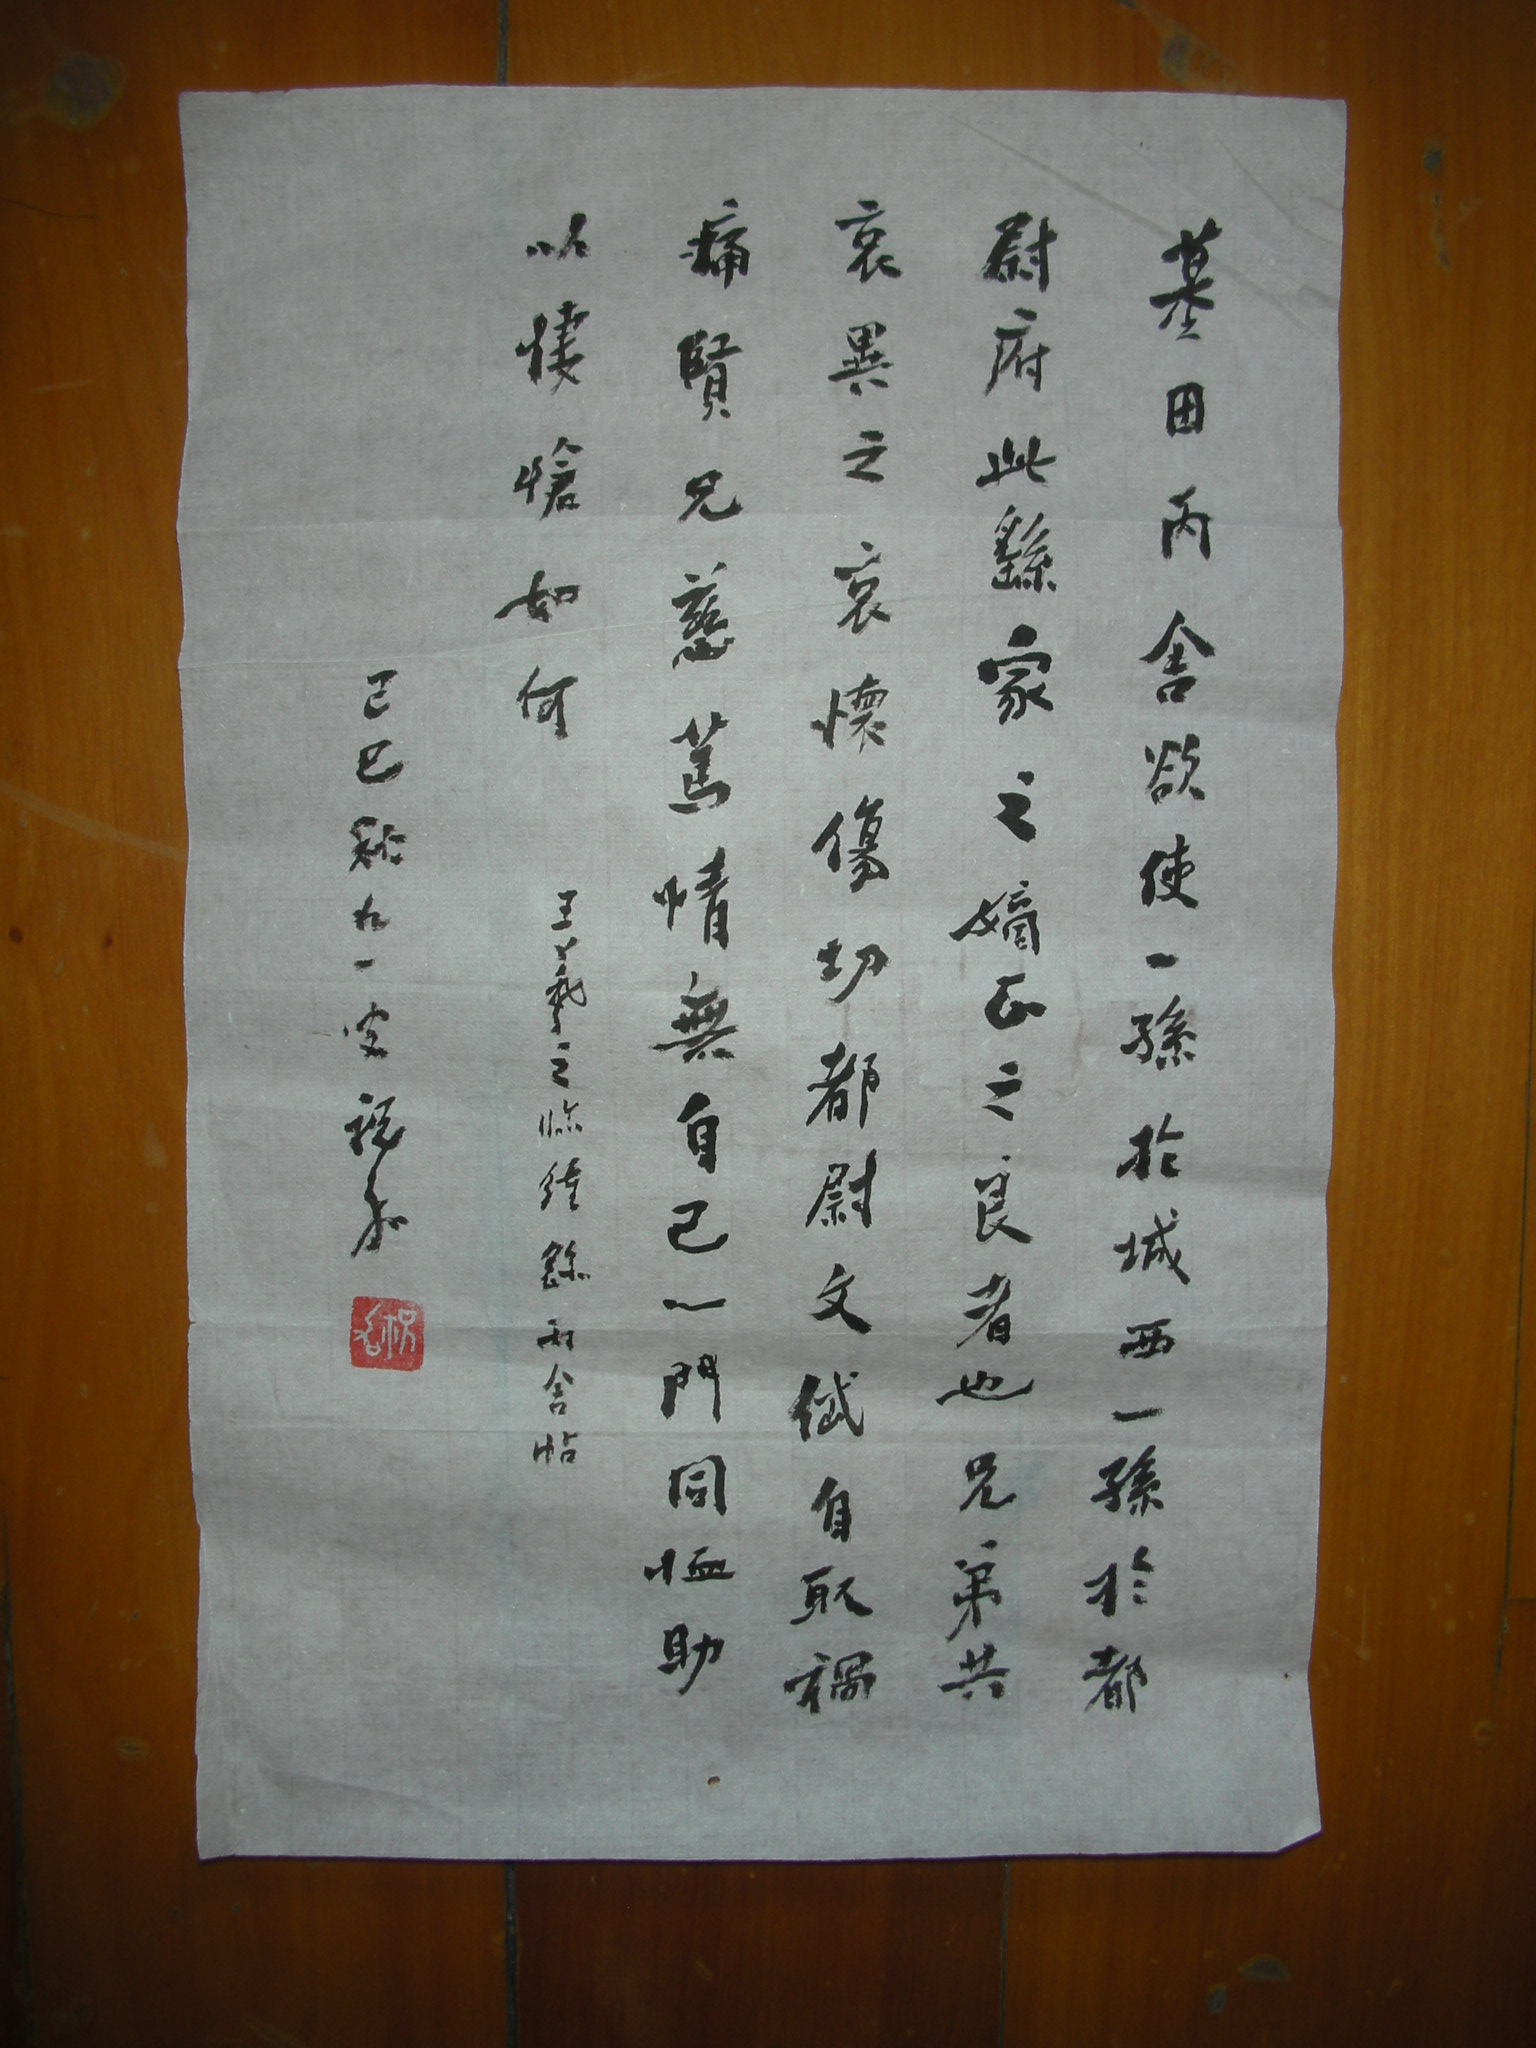 墓田丙舍欲使一孫於城西一孫於都
尉府此繇家之嫡正之良者也兄弟共
哀異之哀懷傷切都尉文岱自取禍
痛賢兄慈篤情無自己一門同恤助
以悽愴如何
王羲之临鍾繇丙舍帖
己巳秋九一叟祝嘉